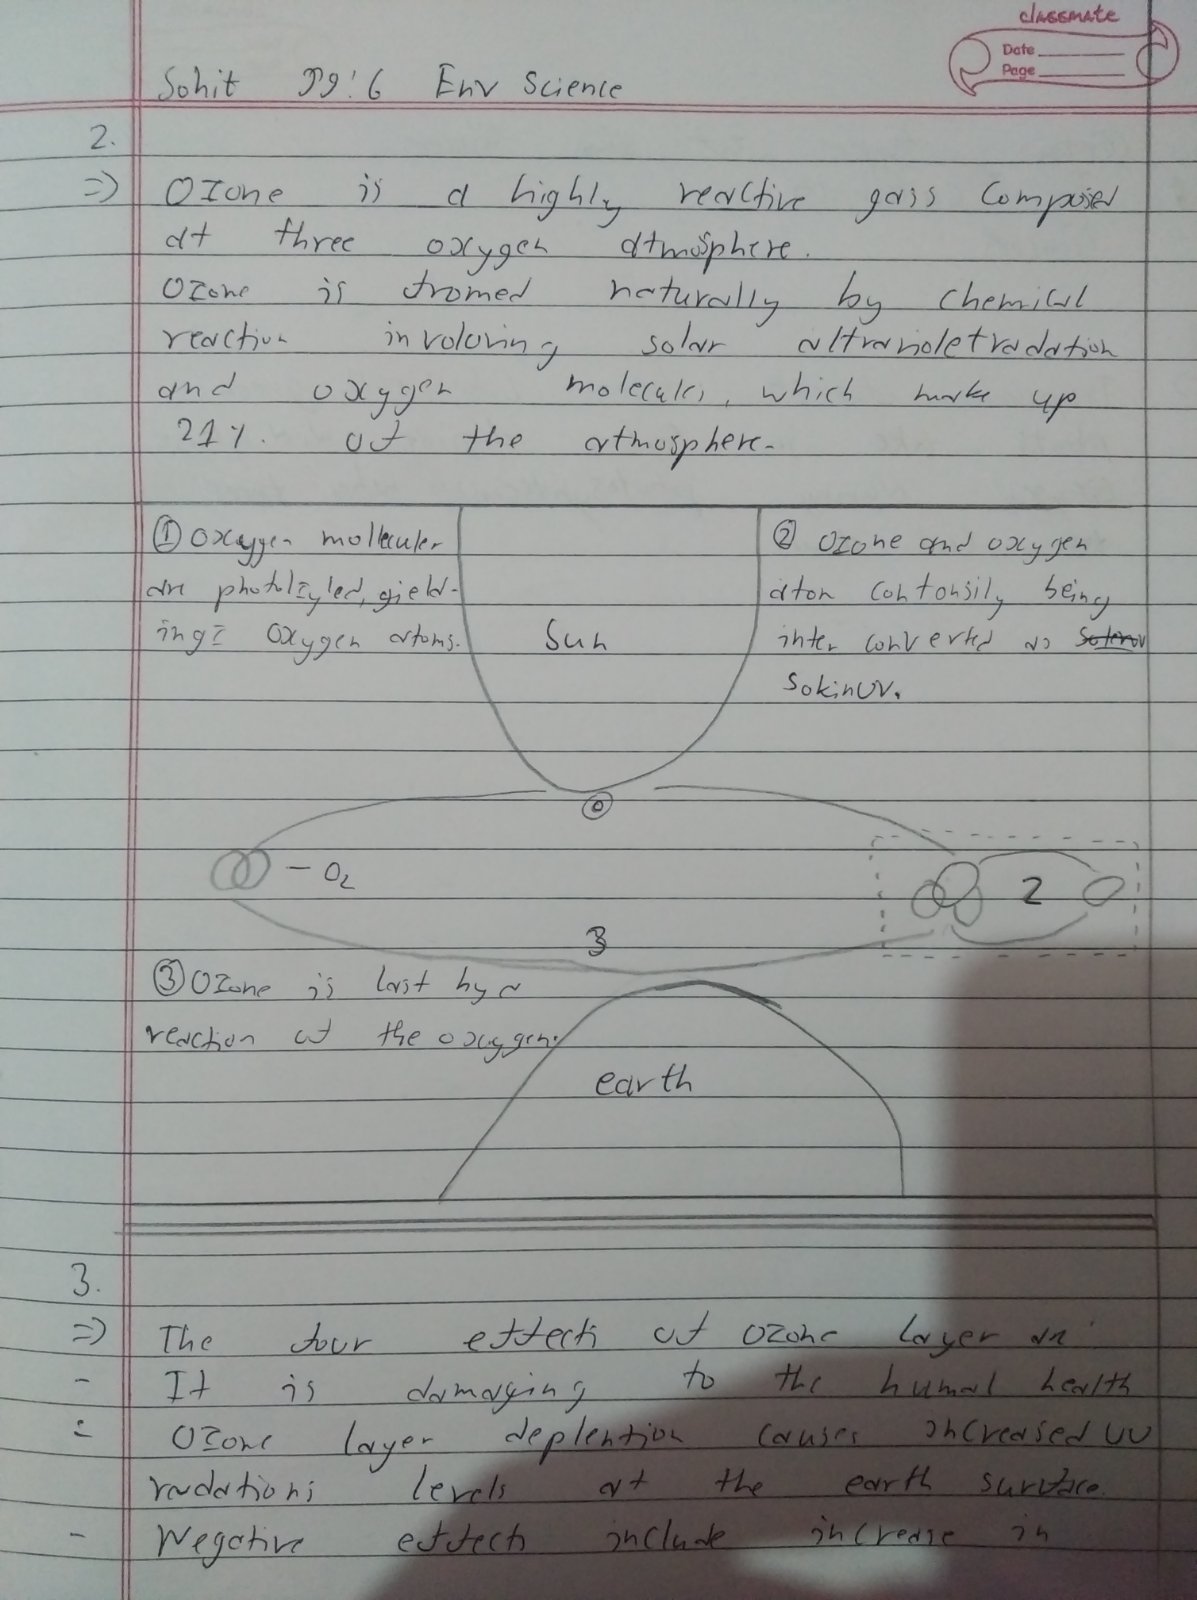 classmate
Date
Page
Sohit 99:6 Env Science
2.
=> Ozone is a highly reactive gass Composed
at three oxygen atmosphere.
Ozone is tromed naturally by chemical
reaction involoving solar altravioletradation
and oxygen molecules, which make up
21%. of the atmosphere.
① Oxygen molleculer
are photolzyled, yield-
ing 2 Oxygen atoms.
Sun
② Ozone and oxygen
aton contonsily being
inter converted as
SokinUV.
O
- O2
2
3
③ Ozone is last by a
reaction of the oxygen.
earth
3.
=> The four effects of ozone layer are
- It is damaging to the humal health
- Ozone layer deplention causes increased UV
radations levels at the earth surface.
- Negative effects include increase in